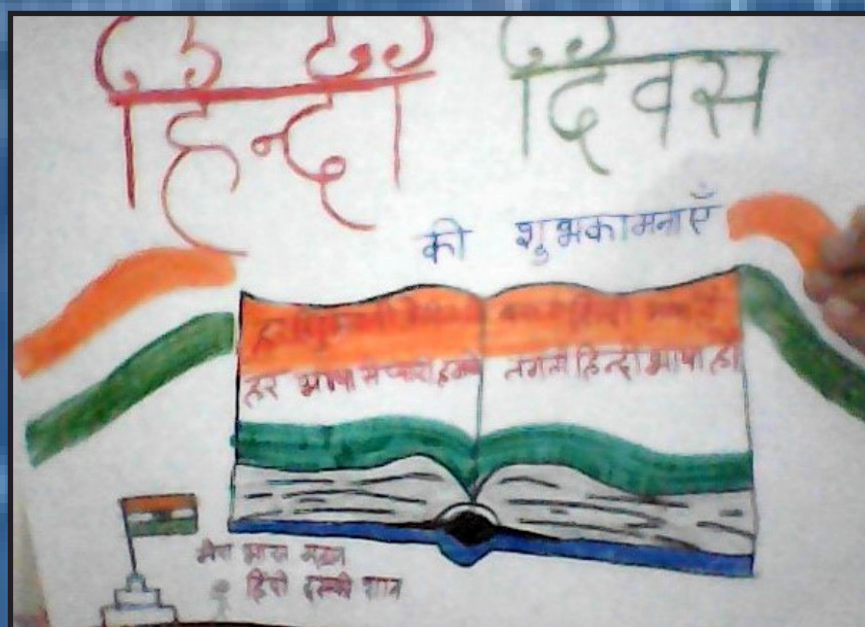 हिन्दी दिवस
की शुभकामनाएँ
हर भाषा से प्यारी हमको लगती हिन्दी भाषा है।
मेरा भारत महान
हिंदी इसकी शान